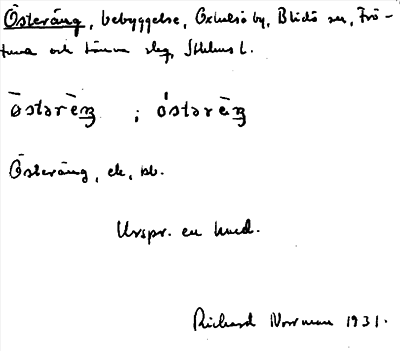 Österäng, bebyggelse, Oxhalsö by, Blidö sn, Frö-
tuna och Länna slg, Sthlms l.
östərèŋ ; östərèŋ
Österäng, ek, bb.
Urspr. en hmd.
Richard Norrman 1931.